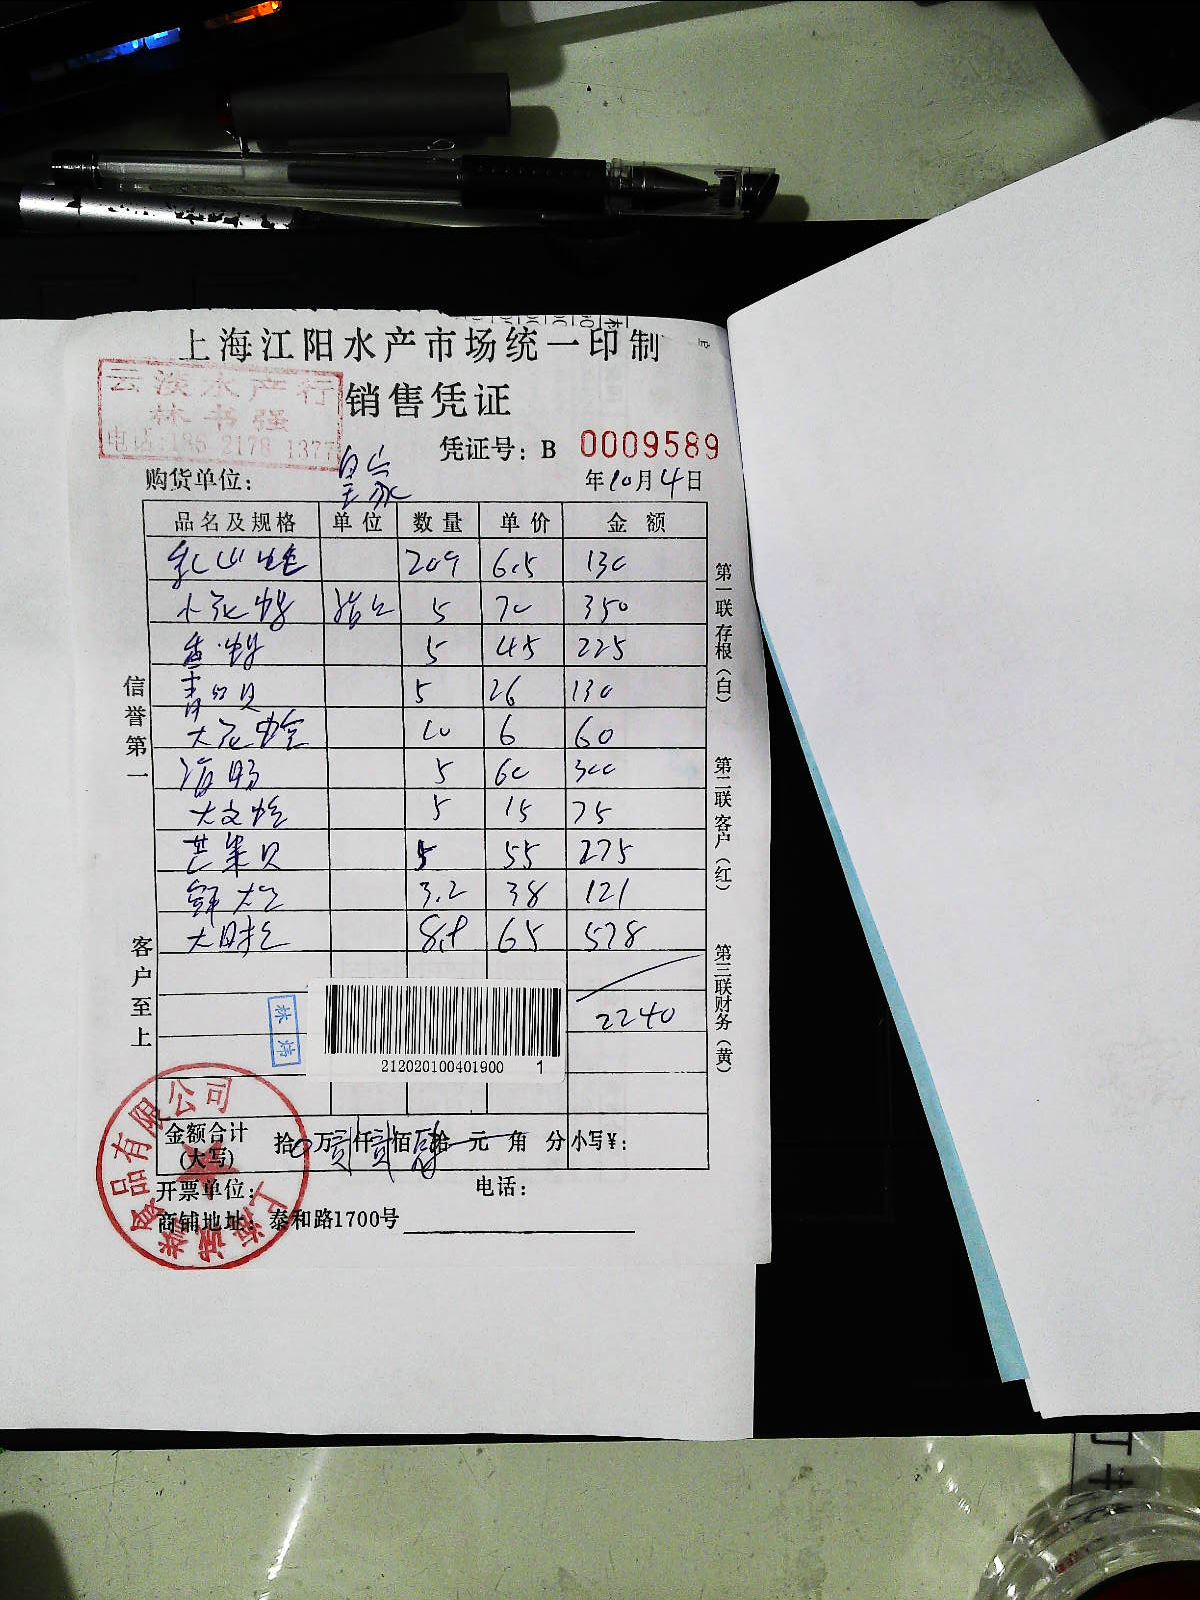 上海江阳水产市场统一印制
云淡水产行
林书强
电话:186 2178 1377
销售凭证
凭证号: B 0009589
购货单位: 皇家
年10月4日
品名及规格 单位 数量 单价 金额
乳山生蚝 20个 6.5 130
小花螺 5 70 350
香螺 5 45 225
青口贝 5 26 130
大花蛤 10 6 60
海肠 5 60 300
大文蛤 5 15 75
芒果贝 5 55 275
3.2 38 121
8.9 65 578
2240
林炜
212020100401900 1
金额合计
(大写)
拾0万贰仟贰佰肆拾元角分 小写¥:
开票单位:
电话:
商铺地址: 泰和路1700号
上海诚誉食品有限公司
信誉第一
客户至上
第一联存根(白)
第二联客户(红)
第三联财务(黄)